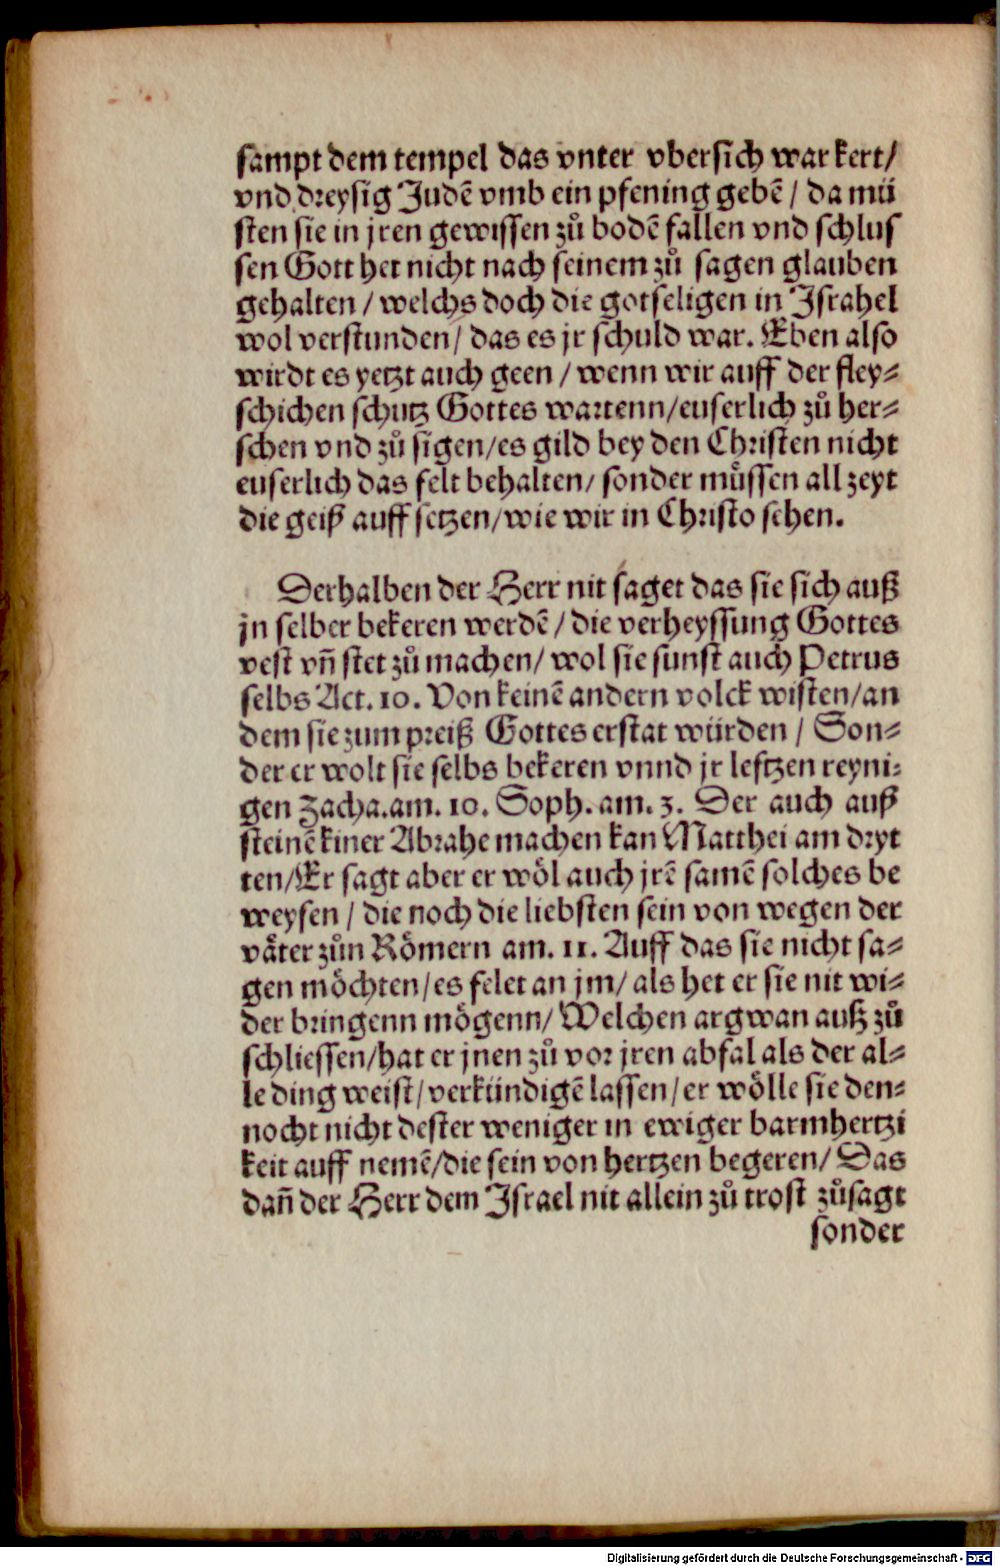 sampt dem tempel das vnter vbersich war kert/
vnd dreysig Judē vmb ein pfening gebē / da mü
sten sie in jren gewissen zů bodē fallen vnd schlus
sen Gott het nicht nach seinem zů sagen glauben
gehalten / welchs doch die gotseligen in Jsrahel
wol verstunden / das es jr schuld war. Eben also
wirdt es yetzt auch geen / wenn wir auff der fley⸗
schichen schutz Gottes wartenn/euserlich zů her⸗
schen vnd zů sigen/es gild bey den Christen nicht
euserlich das felt behalten/ sonder můssen all zeyt
die geiß auff setzen/wie wir in Christo sehen.
Derhalben der Herr nit saget das sie sich auß
jn selber bekeren werdē / die verheyssung Gottes
vest vn̄ stet zů machen/ wol sie sunst auch Petrus
selbs Act. 10. Von keinē andern volck wisten/an
dem sie zum preiß Gottes erstat würden / Son⸗
der er wolt sie selbs bekeren vnnd jr leftzen reyni⸗
gen Zacha.am. 10. Soph. am. 3. Der auch auß
steinē kiner Abrahe machen kan Matthei am dryt
ten/Er sagt aber er wöl auch jrē samē solches be
weysen / die noch die liebsten sein von wegen der
väter zůn Römern am. 11. Auff das sie nicht sa⸗
gen möchten/es felet an jm/ als het er sie nit wi⸗
der bringenn mögenn/ Welchen argwan auß zů
schliessen/hat er jnen zů vor jren abfal als der al⸗
le ding weist/verkündigē lassen/er wölle sie den⸗
nocht nicht dester weniger in ewiger barmhertzi
keit auff nemē/die sein von hertzen begeren/ Das
dan̄ der Herr dem Jsrael nit allein zů trost zůsagt
sonder
Digitalisierung gefördert durch die Deutsche Forschungsgemeinschaft - DFG